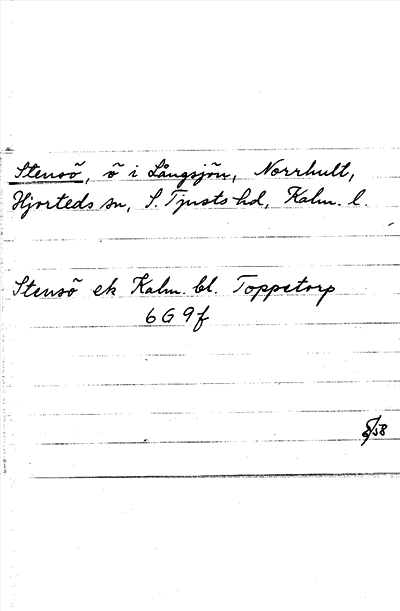 Stensö, ö i Långsjön, Norrhult,
Hjorteds sn, S. Tjusts hd, Kalm. l.
Stensö ek Kalm. bl. Toppetorp
6G9f